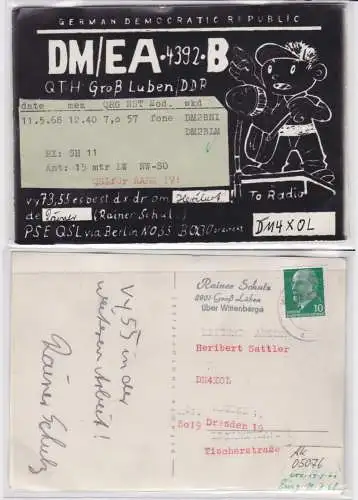 GERMAN DEMOCRATIC REPUBLIC
DM/EA-4392-B
QTH Groß Luben/DDR
date mez QRG RST Mod. wkd
11.5.66 12.40 7,0 57 fone DM2BNI
DM2BLM
RX: SH 11
Ant: 15 mtr LW NW-SO
QSL für AABK IV!
vy 73,55 es best dx dr om Heribert
de Rainer (Rainer Schulz)
To Radio
DM4XOL
PSE QSL via Berlin N055 BOX30
Rainer Schulz
Groß Lüben
über Wittenberge
10
Vy 55 in der
weiteren Arbeit!
Rainer Schulz
Heribert Sattler
DM4XOL
8019 Dresden
Tischerstraße
05076